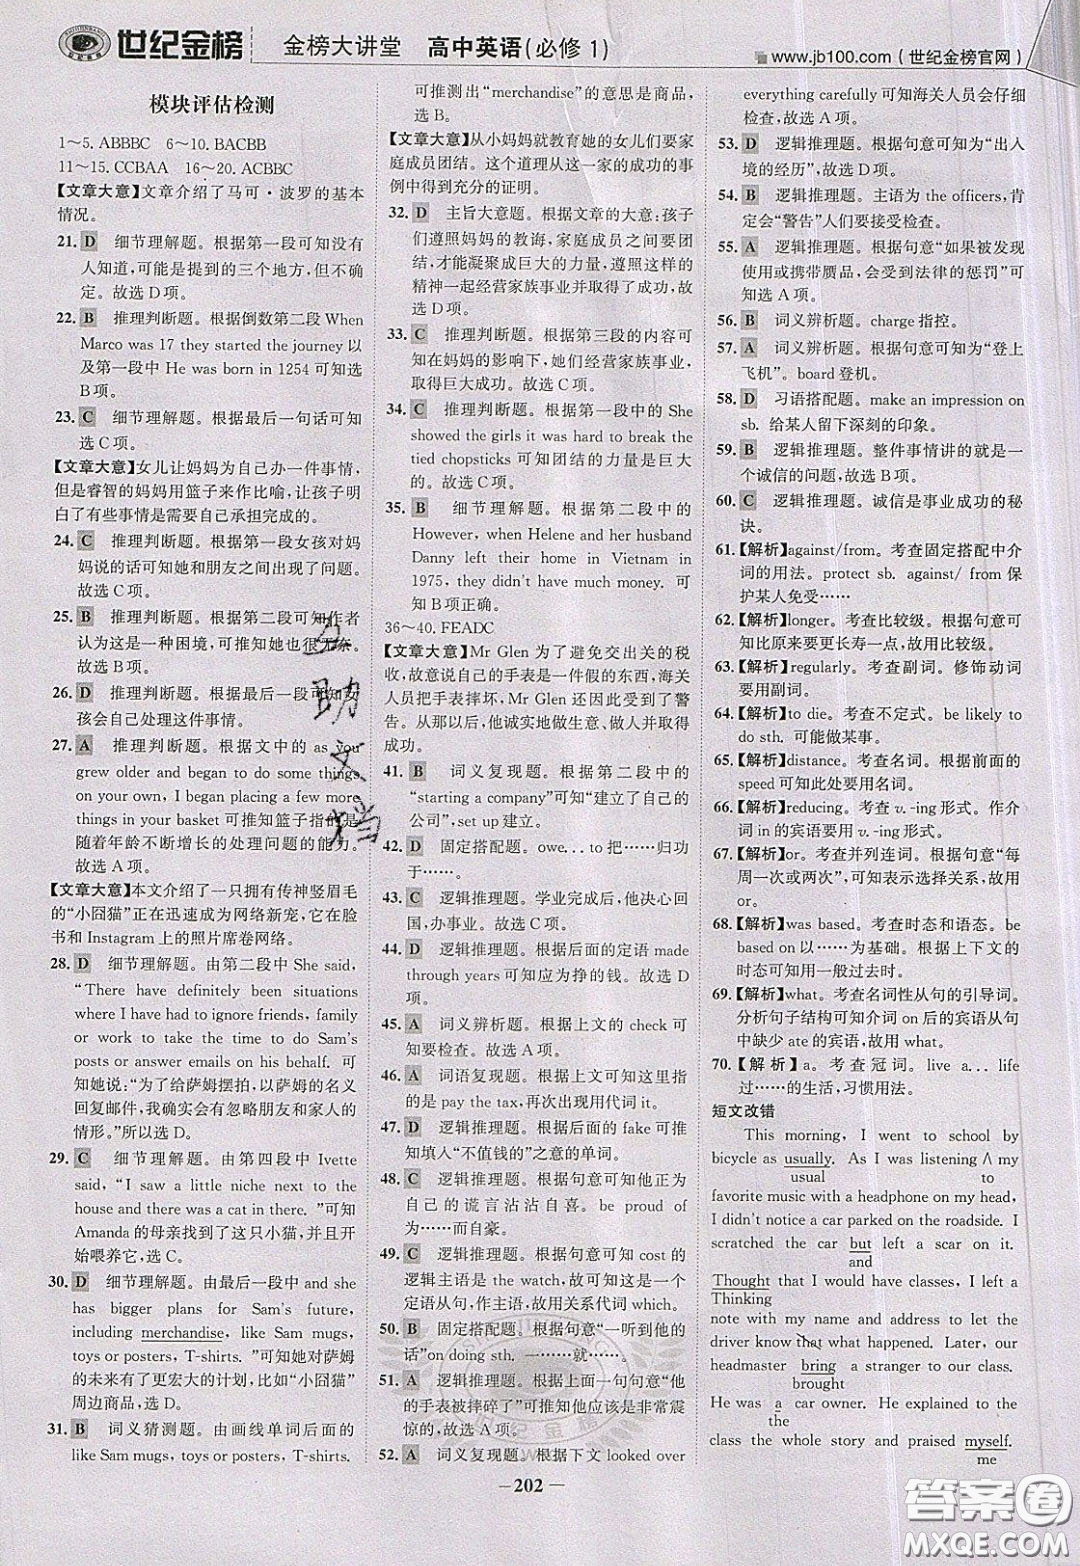 世纪金榜 金榜大讲堂 高中英语(必修1)
www.jb100.com(世纪金榜官网)
模块评估检测
1～5. ABBBC 6～10. BACBB
11～15. CCBAA 16～20. ACBBC
【文章大意】文章介绍了马可·波罗的基本
情况。
21. D 细节理解题。根据第一段可知没有
人知道,可能是提到的三个地方,但不确
定。故选D项。
22. B 推理判断题。根据倒数第二段When
Marco was 17 they started the journey以
及第一段中He was born in 1254可知选
B项。
23. C 细节理解题。根据最后一句话可知
选C项。
【文章大意】女儿让妈妈为自己办一件事情,
但是睿智的妈妈用篮子来作比喻,让孩子明
白了有些事情是需要自己承担完成的。
24. C 推理判断题。根据第一段女孩对妈
妈说的话可知她和朋友之间出现了问题。
故选C项。
25. B 推理判断题。根据第二段可知作者
认为这是一种困境,可推知她也很无奈。
故选B项。
26. D 推理判断题。根据最后一段可知女
孩会自己处理这件事情。
27. A 推理判断题。根据文中的as you
grew older and began to do some things
on your own, I began placing a few more
things in your basket可推知篮子指的是
随着年龄不断增长的处理问题的能力。
故选A项。
【文章大意】本文介绍了一只拥有传神竖眉毛
的“小囧猫”正在迅速成为网络新宠,它在脸
书和Instagram上的照片席卷网络。
28. D 细节理解题。由第二段中She said,
“There have definitely been situations
where I have had to ignore friends, family
or work to take the time to do Sam's
posts or answer emails on his behalf. 可
知她说:“为了给萨姆摆拍,以萨姆的名义
回复邮件,我会有忽略朋友和家人的
情形。”所以选D。
29. C 细节理解题。由第四段中Ivette
said, “I saw a little niche next to the
house and there was a cat in there. ”可知
Amanda的母亲找到了这只小猫,并且开
始喂养它,选C。
30. D 细节理解题。由最后一段中and she
has bigger plans for Sam's future,
including merchandise, like Sam mugs,
toys or posters, T-shirts. ”可知她对萨姆
的未来有了更宏大的计划,比如“小囧猫”
周边商品,选D。
31. B 词义猜测题。由画线单词后面的
like Sam mugs, toys or posters, T-shirts
可推测出“merchandise”的意思是商品,
选B。
【文章大意】从小妈妈就教育她的女儿们要家
庭成员团结。这个道理从这一家的成功的事
例中得到充分的证明。
32. D 主旨大意题。根据文章的大意:孩子
们遵照妈妈的教诲,家庭成员之间要团
结,才能凝聚成巨大的力量,遵照这样的
精神一起经营家族事业并取得了成功。
33. C 推理判断题。根据第三段的内容可
知在妈妈的影响下,她们经营家族事业,
取得巨大成功。故选C项。
34. C 推理判断题。根据第一段中的She
showed the girls it was hard to break the
tied chopsticks可知团结的力量是巨大
的。故选C项。
35. B 细节理解题。根据第二段中的
However, when Helene and her husband
Danny left their home in Vietnam in
1975, they didn't have much money. 可
知B项正确。
36～40. FEADC
【文章大意】Mr Glen为了避免交出关的税
收,故意说自己的手表是一件假的东西,海关
人员把手表摔坏,Mr Glen还因此受到了警
告。从那以后,他诚实地做生意、做人并取得
成功。
41. B 词义复现题。根据第二段中的
“starting a company”可知“建立了自己的
公司”,set up建立。
42. D 固定搭配题。owe...to把……归功
于……。
43. C 逻辑推理题。学业完成后,他决心回
国,办事业。故选C项。
44. D 逻辑推理题。根据后面的定语made
through years可知应为挣的钱。故选D
项。
45. A 词义辨析题。根据上文的check可
知要检查。故选A项。
46. A 词语复现题。根据上文可知这里指
的是pay the tax,再次出现用代词it。
47. D 逻辑推理题。根据后面的fake可推
知填入“不值钱的”之意的单词。
48. C 逻辑推理题。根据句意可知他正为
自己的谎言沾沾自喜。be proud of
为……而自豪。
49. C 逻辑推理题。根据句意可知cost的
逻辑主语是the watch,故可知这是一个
定语从句,作主语,故用关系代词which。
50. B 固定搭配题。根据句意“一听到他的
话”on doing sth. 一……就……。
51. A 逻辑推理题。根据上一句句意“他
的手表被摔碎了”可推知他应该是非常震
惊的,故选A项。
52. A 词义复现题。根据下文looked over
everything carefully可知海关人员会仔细
检查,故选A项。
53. D 逻辑推理题。根据句意可知为“出入
境的经历”,故选D项。
54. B 逻辑推理题。主语为the officers,肯
定会“警告”人们要接受检查。
55. A 逻辑推理题。根据句意“如果被发现
使用或携带赝品,会受到法律的惩罚”可
知选A项。
56. B 词义辨析题。charge指控。
57. A 词义辨析题。根据句意可知为“登上
飞机”。board登机。
58. D 习语搭配题。make an impression on
sb. 给某人留下深刻的印象。
59. B 逻辑推理题。整件事情讲的就是一
个诚信的问题,故选B项。
60. C 逻辑推理题。诚信是事业成功的秘
诀。
61.【解析】against/from。考查固定搭配中介
词的用法。protect sb. against/ from保
护某人免受……
62.【解析】longer。考查比较级。根据句意可
知比原来要活得长一点,故用比较级。
63.【解析】regularly。考查副词。修饰动词
要用副词。
64.【解析】to die。考查不定式。be likely to
do sth. 可能做某事。
65.【解析】distance。考查名词。根据前面的
speed可知此处要用名词。
66.【解析】reducing。考查v. -ing形式。作介
词in的宾语要用v. -ing形式。
67.【解析】or。考查并列连词。根据句意“每
周一次或两次”,可知表示选择关系,故用
or。
68.【解析】was based。考查时态和语态。be
based on以……为基础。根据上下文的
时态可知用一般过去时。
69.【解析】what。考查名词性从句的引导词。
分析句子结构可知介词on后的宾语从句
中缺少ate的宾语,故用what。
70.【解析】a。考查冠词。live a... life
过……的生活,习惯用法。
短文改错
This morning, I went to school by
bicycle as usually. As I was listening /\ my
usual to
favorite music with a headphone on my head,
I didn't notice a car parked on the roadside. I
scratched the car but left a scar on it.
and
Thought that I would have classes, I left a
Thinking
note with my name and address to let the
driver know that what happened. Later, our
headmaster bring a stranger to our class.
brought
He was a car owner. He explained to the
the
class the whole story and praised myself.
me
互
助
文
档
— 202 —
答案圈
MXQE.COM